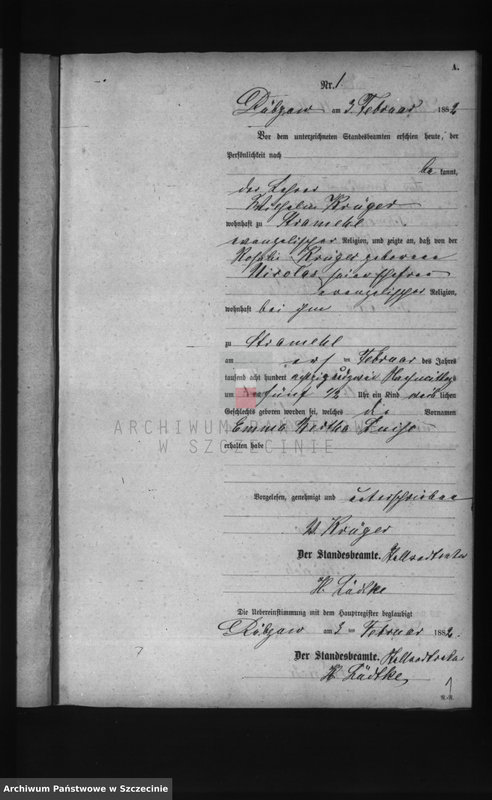 A.
Nr. 1
Rübgow am 3 Februar 1882
Vor dem unterzeichneten Standesbeamten erschien heute, der
Persönlichkeit nach
be kannt,
der Lehrer
Wilhelm Krüger
wohnhaft zu Stramehl
evangelischer Religion, und zeigte an, daß von der
Krüger geborene
Nicolas seiner Ehefrau
evangelischer Religion,
wohnhaft bei ihm
zu Stramehl
am ersten Februar des Jahres
tausend acht hundert achtzig und zwei Nachmittags
um fünf 1/2 Uhr ein Kind weiblichen
Geschlechts geboren worden sei, welches die Vornamen
Emma Bertha Luise
erhalten habe
ARCHIWUM PAŃSTWOWE
W SZCZECINIE
Vorgelesen, genehmigt und unterschrieben
W. Krüger
Der Standesbeamte. Stellvertreter
H. Lüdtke
Die Uebereinstimmung mit dem Hauptregister beglaubigt
Rübgow am 3 ten Februar 1882.
Der Standesbeamte. Stellvertreter
H. Lüdtke
Archiwum Państwowe w Szczecinie